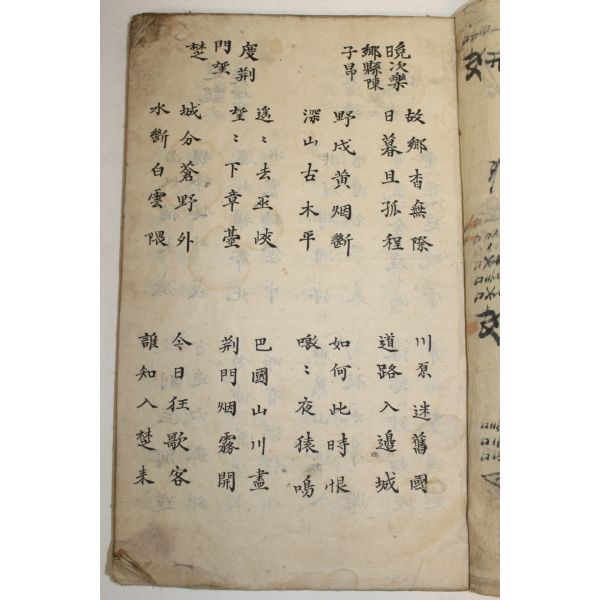 晚次樂
鄉縣陳
子昂
故鄉杳無際
日暮且孤程
川原迷舊國
道路入邊城
野戍黄烟斷
深山古木平
如何此時恨
噭〻夜猿鳴
度荆
門望
楚
遥〻去巫峽
望〻下章臺
巴國山川盡
荆門烟霧開
城分蒼野外
水斷白雲隈
今日狂歌客
誰知入楚来